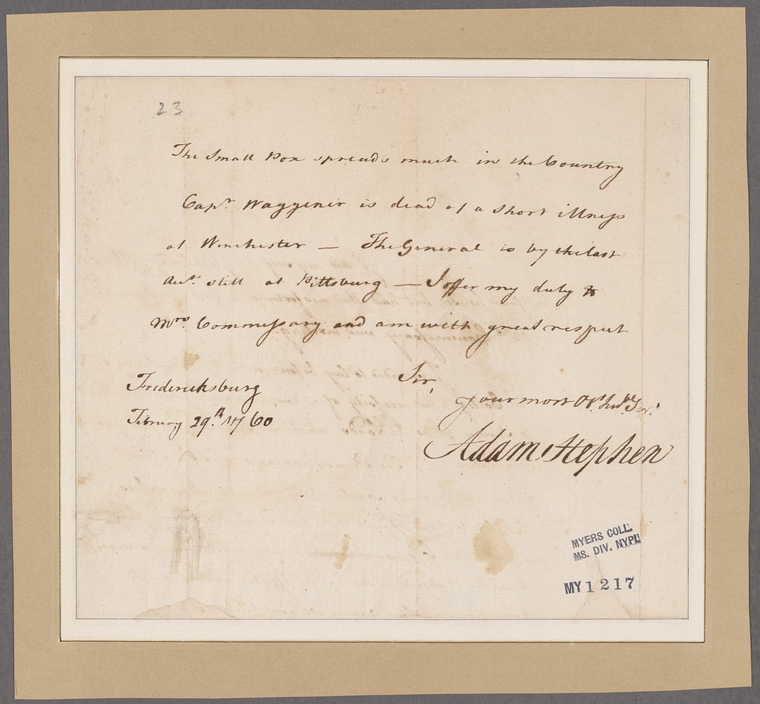 23
The Small Pox spreads much in the Country
Capt. Waggener is dead of a short illness
at Winchester — The General is by the last
Acts. still at Pittsburg — I offer my duty to
Mrs. Commissary and am with great respect
Sir,
your most Obt. Hubl. Ser.
Fredericksburg
Februry 29th. 1760
Adam Stephen
MYERS COLL.
MS. DIV. NYPL
MY 1217